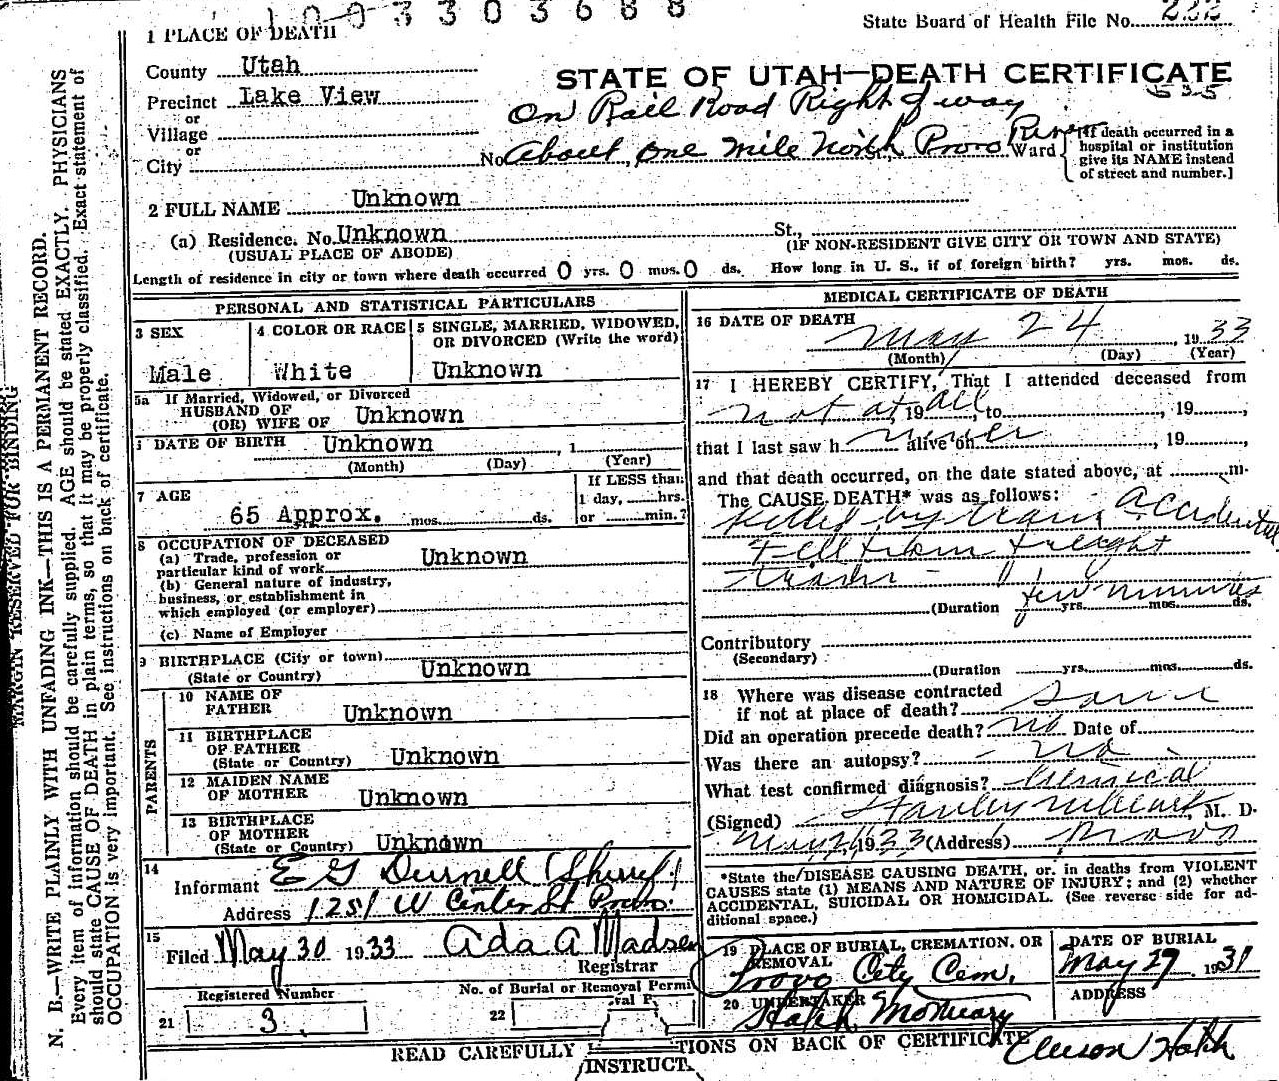 1003303688
State Board of Health File No. 222
1 PLACE OF DEATH
County Utah
STATE OF UTAH—DEATH CERTIFICATE
535
Precinct Lake View
or
Village
or
City
On Rail Road Right of way
No. About one mile North Provo River Ward
[If death occurred in a
hospital or institution
give its NAME instead
of street and number.]
2 FULL NAME Unknown
(a) Residence. No. Unknown St.,
(USUAL PLACE OF ABODE) (IF NON-RESIDENT GIVE CITY OR TOWN AND STATE)
Length of residence in city or town where death occurred 0 yrs. 0 mos. 0 ds. How long in U. S., if of foreign birth? yrs. mos. ds.
PERSONAL AND STATISTICAL PARTICULARS
3 SEX
Male
4 COLOR OR RACE
White
5 SINGLE, MARRIED, WIDOWED,
OR DIVORCED (Write the word)
Unknown
5a If Married, Widowed, or Divorced
HUSBAND OF
(OR) WIFE OF Unknown
DATE OF BIRTH Unknown , 1
(Month) (Day) (Year)
7 AGE
65 Approx. mos. ds.
If LESS than
1 day, hrs.
or min.?
8 OCCUPATION OF DECEASED
(a) Trade, profession or
particular kind of work Unknown
(b) General nature of industry,
business, or establishment in
which employed (or employer)
(c) Name of Employer
9 BIRTHPLACE (City or town)
(State or Country) Unknown
PARENTS
10 NAME OF
FATHER Unknown
11 BIRTHPLACE
OF FATHER
(State or Country) Unknown
12 MAIDEN NAME
OF MOTHER Unknown
13 BIRTHPLACE
OF MOTHER
(State or Country) Unknown
14
Informant E G Durnell (Sheriff)
Address 1251 W Center St Provo
15
Filed May 30 1933 Ada A Madsen
Registrar
Registered Number
21 3
No. of Burial or Removal Permi
22
MEDICAL CERTIFICATE OF DEATH
16 DATE OF DEATH
May 24, 1933
(Month) (Day) (Year)
17 I HEREBY CERTIFY, That I attended deceased from
not at, 19 all, to , 19
that I last saw h never alive on , 19
and that death occurred, on the date stated above, at m.
The CAUSE DEATH* was as follows:
Killed by train accidental
Fell from freight
train
(Duration few minutes yrs. mos. ds.
Contributory
(Secondary)
(Duration yrs. mos. ds.
18 Where was disease contracted
if not at place of death? Same
Did an operation precede death? no Date of
Was there an autopsy? no
What test confirmed diagnosis?
(Signed) Stanley M. D.
May 1933 (Address) Provo
*State the DISEASE CAUSING DEATH, or, in deaths from VIOLENT
CAUSES state (1) MEANS AND NATURE OF INJURY; and (2) whether
ACCIDENTAL, SUICIDAL OR HOMICIDAL. (See reverse side for ad-
ditional space.)
19 PLACE OF BURIAL, CREMATION, OR
REMOVAL
Provo City Cem.
DATE OF BURIAL
May 29, 1931
20 UNDERTAKER
Hatch Mortuary
ADDRESS
READ CAREFULLY INSTRUCTIONS ON BACK OF CERTIFICATE
INSTRUCT.
Hatch
MARGIN RESERVED FOR BINDING
N. B.—WRITE PLAINLY WITH UNFADING INK—THIS IS A PERMANENT RECORD.
Every item of information should be carefully supplied. AGE should be stated EXACTLY. PHYSICIANS
should state CAUSE OF DEATH in plain terms, so that it may be properly classified. Exact statement of
OCCUPATION is very important. See instructions on back of certificate.